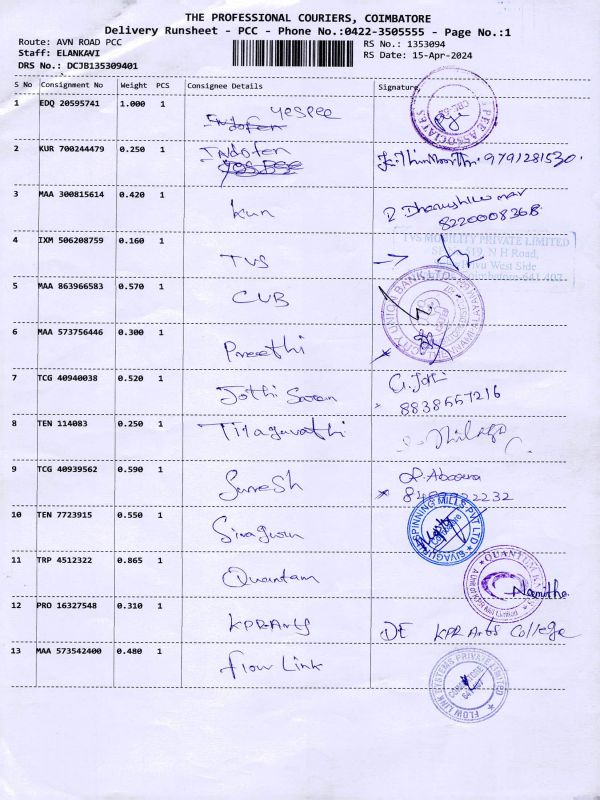 THE PROFESSIONAL COURIERS, COIMBATORE
Delivery Runsheet - PCC - Phone No.:0422-3505555 - Page No.:1
Route: AVN ROAD PCC
Staff: ELANKAVI
DRS No.: DCJB135309401
RS No.: 1353094
RS Date: 15-Apr-2024
S No Consignment No Weight PCS Consignee Details Signature
1 EDQ 20595741 1.000 1 yespee
2 KUR 700244479 0.250 1 Indofen 9791281530
3 MAA 300815614 0.420 1 kun
8220008368
4 IXM 506208759 0.160 1 TVS
TVS MOBILITY PRIVATE LIMITED
N H Road,
West Side
5 MAA 863966583 0.570 1 CUB
CITY UNION BANK LTD
6 MAA 573756446 0.300 1 Preethi
7 TCG 40940038 0.520 1 Jothi Saran
8838557216
8 TEN 114083 0.250 1
9 TCG 40939562 0.590 1 Suresh
10 TEN 7723915 0.550 1 Sivaguru
SPINNING MILLS PVT LTD
11 TRP 4512322 0.865 1 Quantam Namitha
12 PRO 16327548 0.310 1 KPRArts KPR Arts College
13 MAA 573542400 0.480 1 flow Link
FLOW LINK SYSTEMS PRIVATE LIMITED